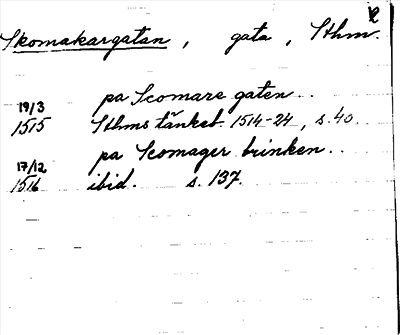 Skomakargatan, gata, Sthm
19/3 pa Scomare gaten..
1515 Sthms tänkeb. 1514-24, s. 40.
17/12 pa Scomager brinken..
1516 ibid. s. 137.